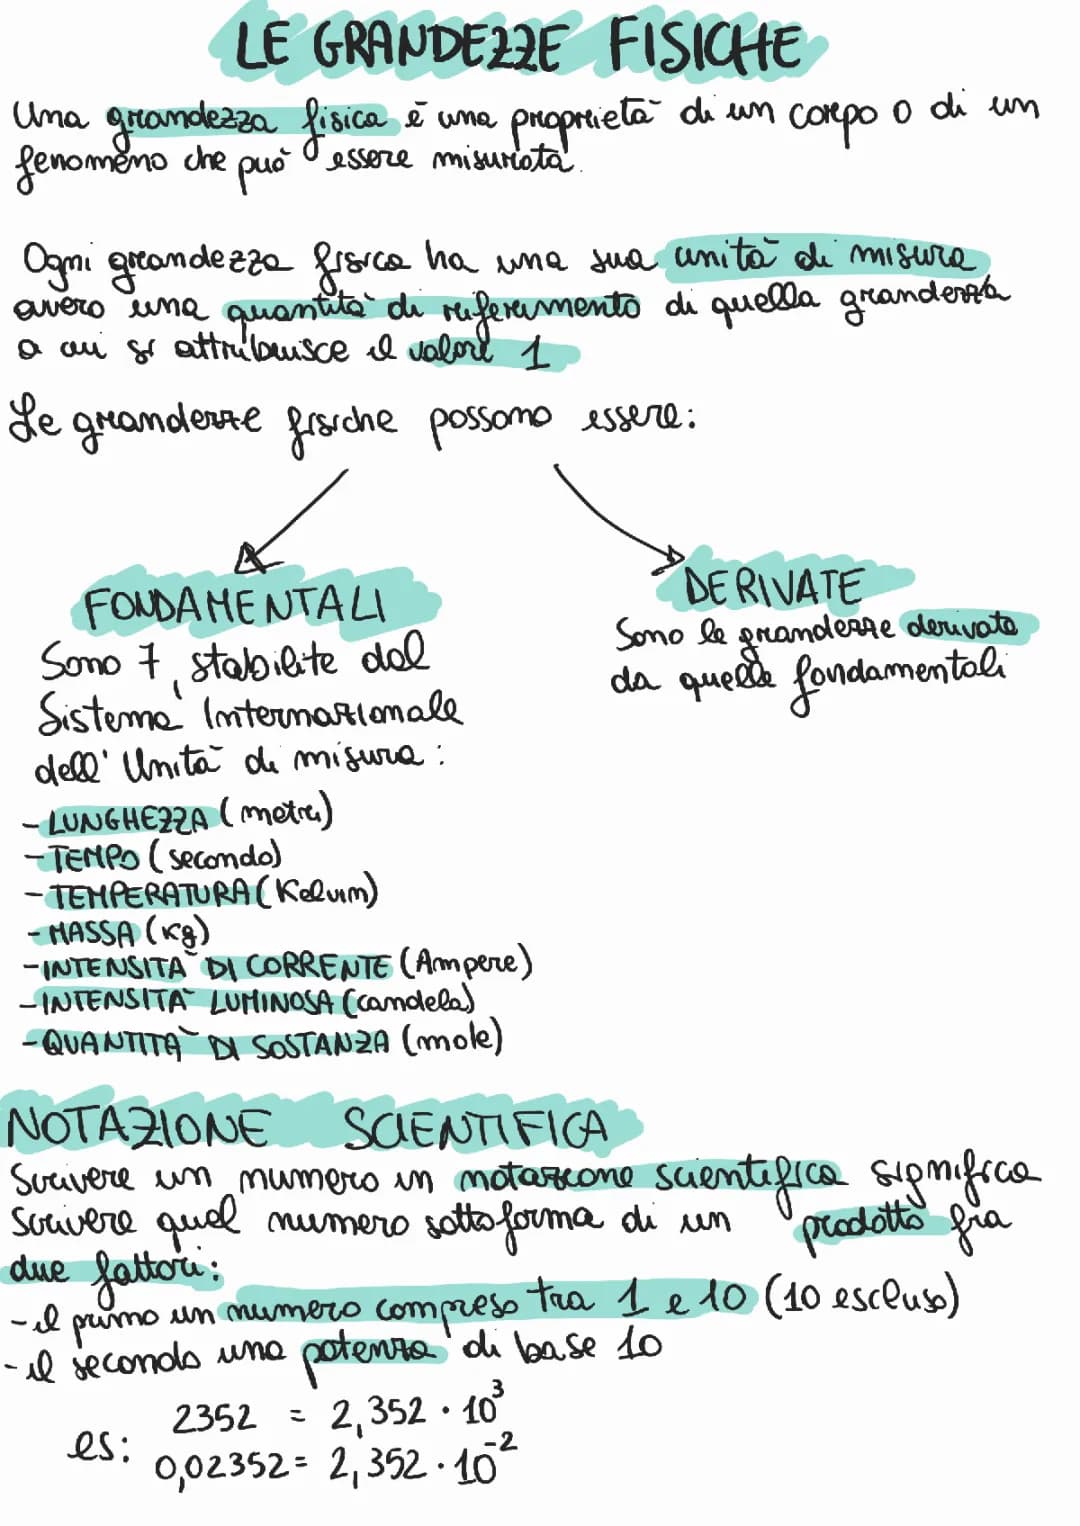 LE GRANDEZZE FISICHE
Una grandezza fisica è una proprietà di un corpo o di un
fenomeno che può essere misurata.
Ogni grandezza fisica ha una sua unità di misura
ovvero una quantità di riferimento di quella grandezza
a cui si attribuisce il valore 1
Le grandezze fisiche possono essere:
FONDAMENTALI
Sono 7, stabilite dal
Sistema Internazionale
dell' Unità di misura:
- LUNGHEZZA (metri)
- TEMPO (secondo)
- TEMPERATURA (Kelvin)
- MASSA (Kg)
- INTENSITÀ DI CORRENTE (Ampere)
- INTENSITÀ LUMINOSA (candela)
- QUANTITÀ DI SOSTANZA (mole)
DERIVATE
Sono le grandezze derivate
da quelle fondamentali
NOTAZIONE SCIENTIFICA
Scrivere un numero in notazione scientifica significa
scrivere quel numero sotto forma di un prodotto fra
due fattori:
- il primo un numero compreso tra 1 e 10 (10 escluso)
- il secondo una potenza di base 10
es: 2352 = 2,352 · 10³
0,02352 = 2,352 · 10⁻²